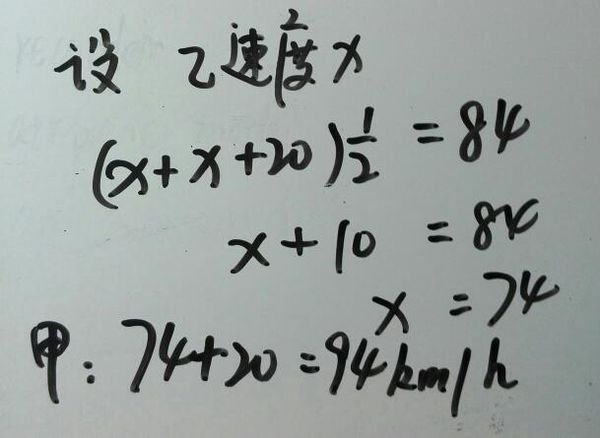 设 乙速度x
(x+x+20)1/2 = 84
x+10 = 84
x = 74
甲: 74+20=94km/h